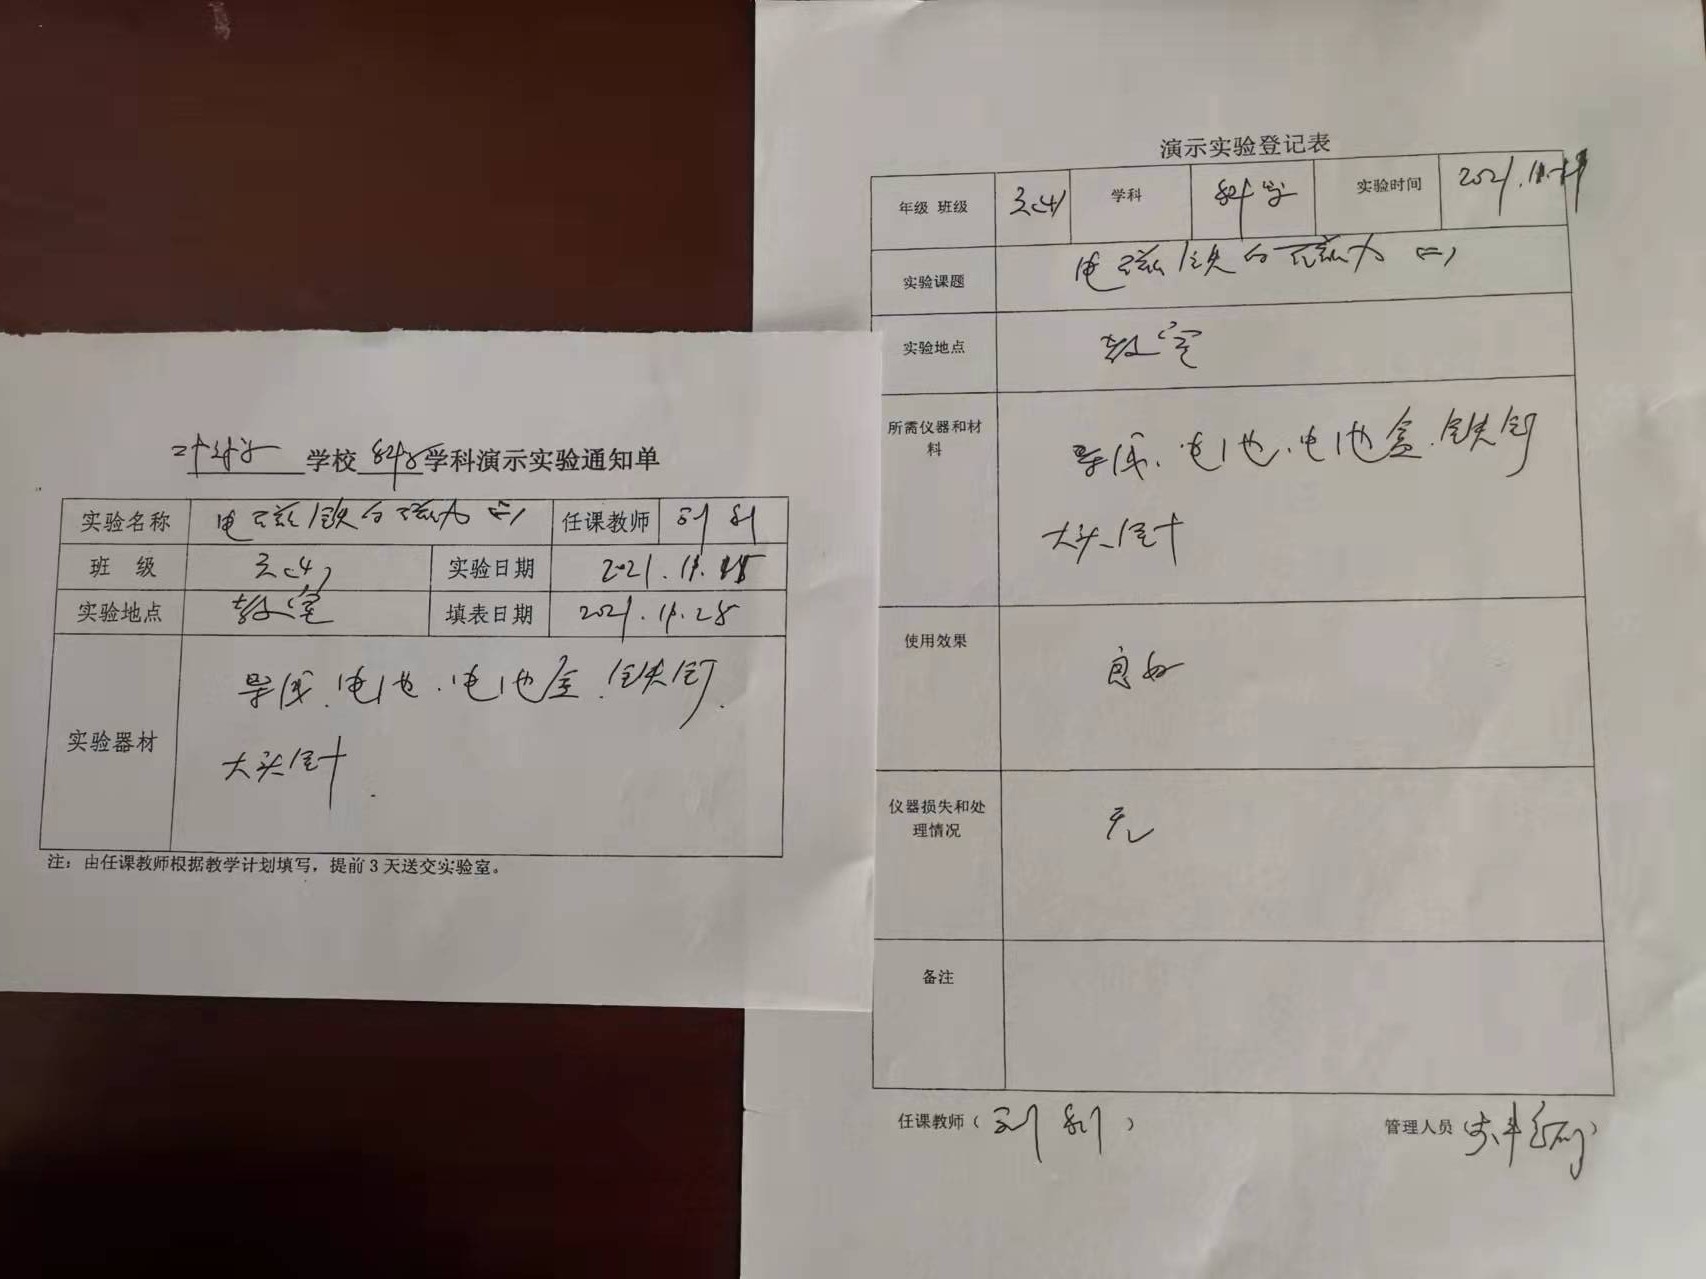 学校 科学 学科演示实验通知单
实验名称 电磁铁的磁力(二) 任课教师 刘
班 级 (4) 实验日期 2021.11.
实验地点 教室 填表日期 2021.11.28
实验器材 导线、电池、电池盒、铁钉、
大头针.
注：由任课教师根据教学计划填写，提前3天送交实验室。
演示实验登记表
年级 班级 (4) 学科 科学 实验时间 2021.11.
实验课题 电磁铁的磁力(二)
实验地点 教室
所需仪器和材料 导线、电池、电池盒、铁钉
大头针
使用效果 良好
仪器损失和处理情况 无
备注
任课教师（刘 ） 管理人员（ ）